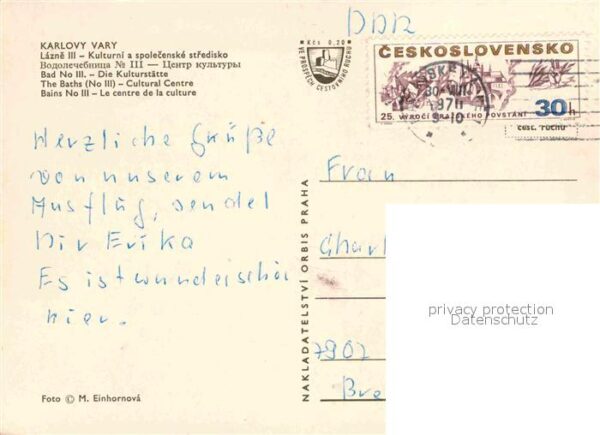 KARLOVY VARY
Lázně III – Kulturní a společenské středisko
Водолечебница № III — Центр культуры
Bad No III. – Die Kulturstätte
The Baths (No III) – Cultural Centre
Bains No III – Le centre de la culture
Kčs 0,20
VE PROSPĚCH CESTOVNÍHO RUCHU
DDR
ČESKOSLOVENSKO
30.VIII.
1970
9-10
25. VÝROČÍ PRAŽSKÉHO POVSTÁNÍ
30h
ČESL. RUCHU
Herzliche Grüße
von unserem
Ausflug, sendet
Dir Erika
Es ist wunderschön
hier.
Frau
Charl
7902
Bre
NAKLADATELSTVÍ ORBIS PRAHA
Foto © M. Einhornová
privacy protection
Datenschutz